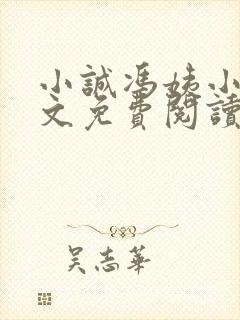 小誠馮姨小
文免費閱讀
吴志華